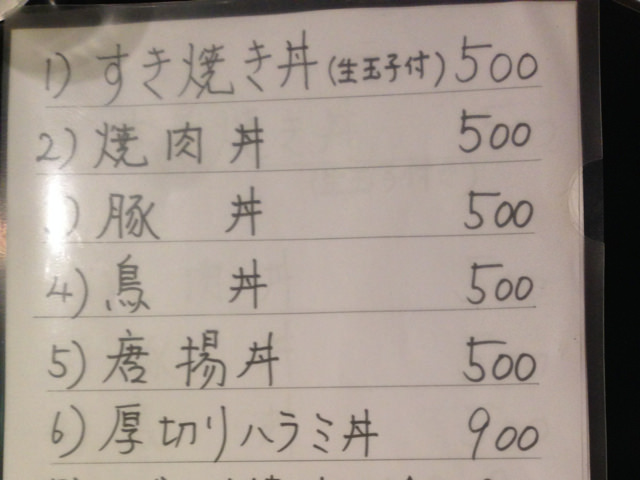 1) すき焼き丼(生玉子付) 500
2) 焼肉丼 500
3) 豚丼 500
4) 鳥丼 500
5) 唐揚丼 500
6) 厚切りハラミ丼 900